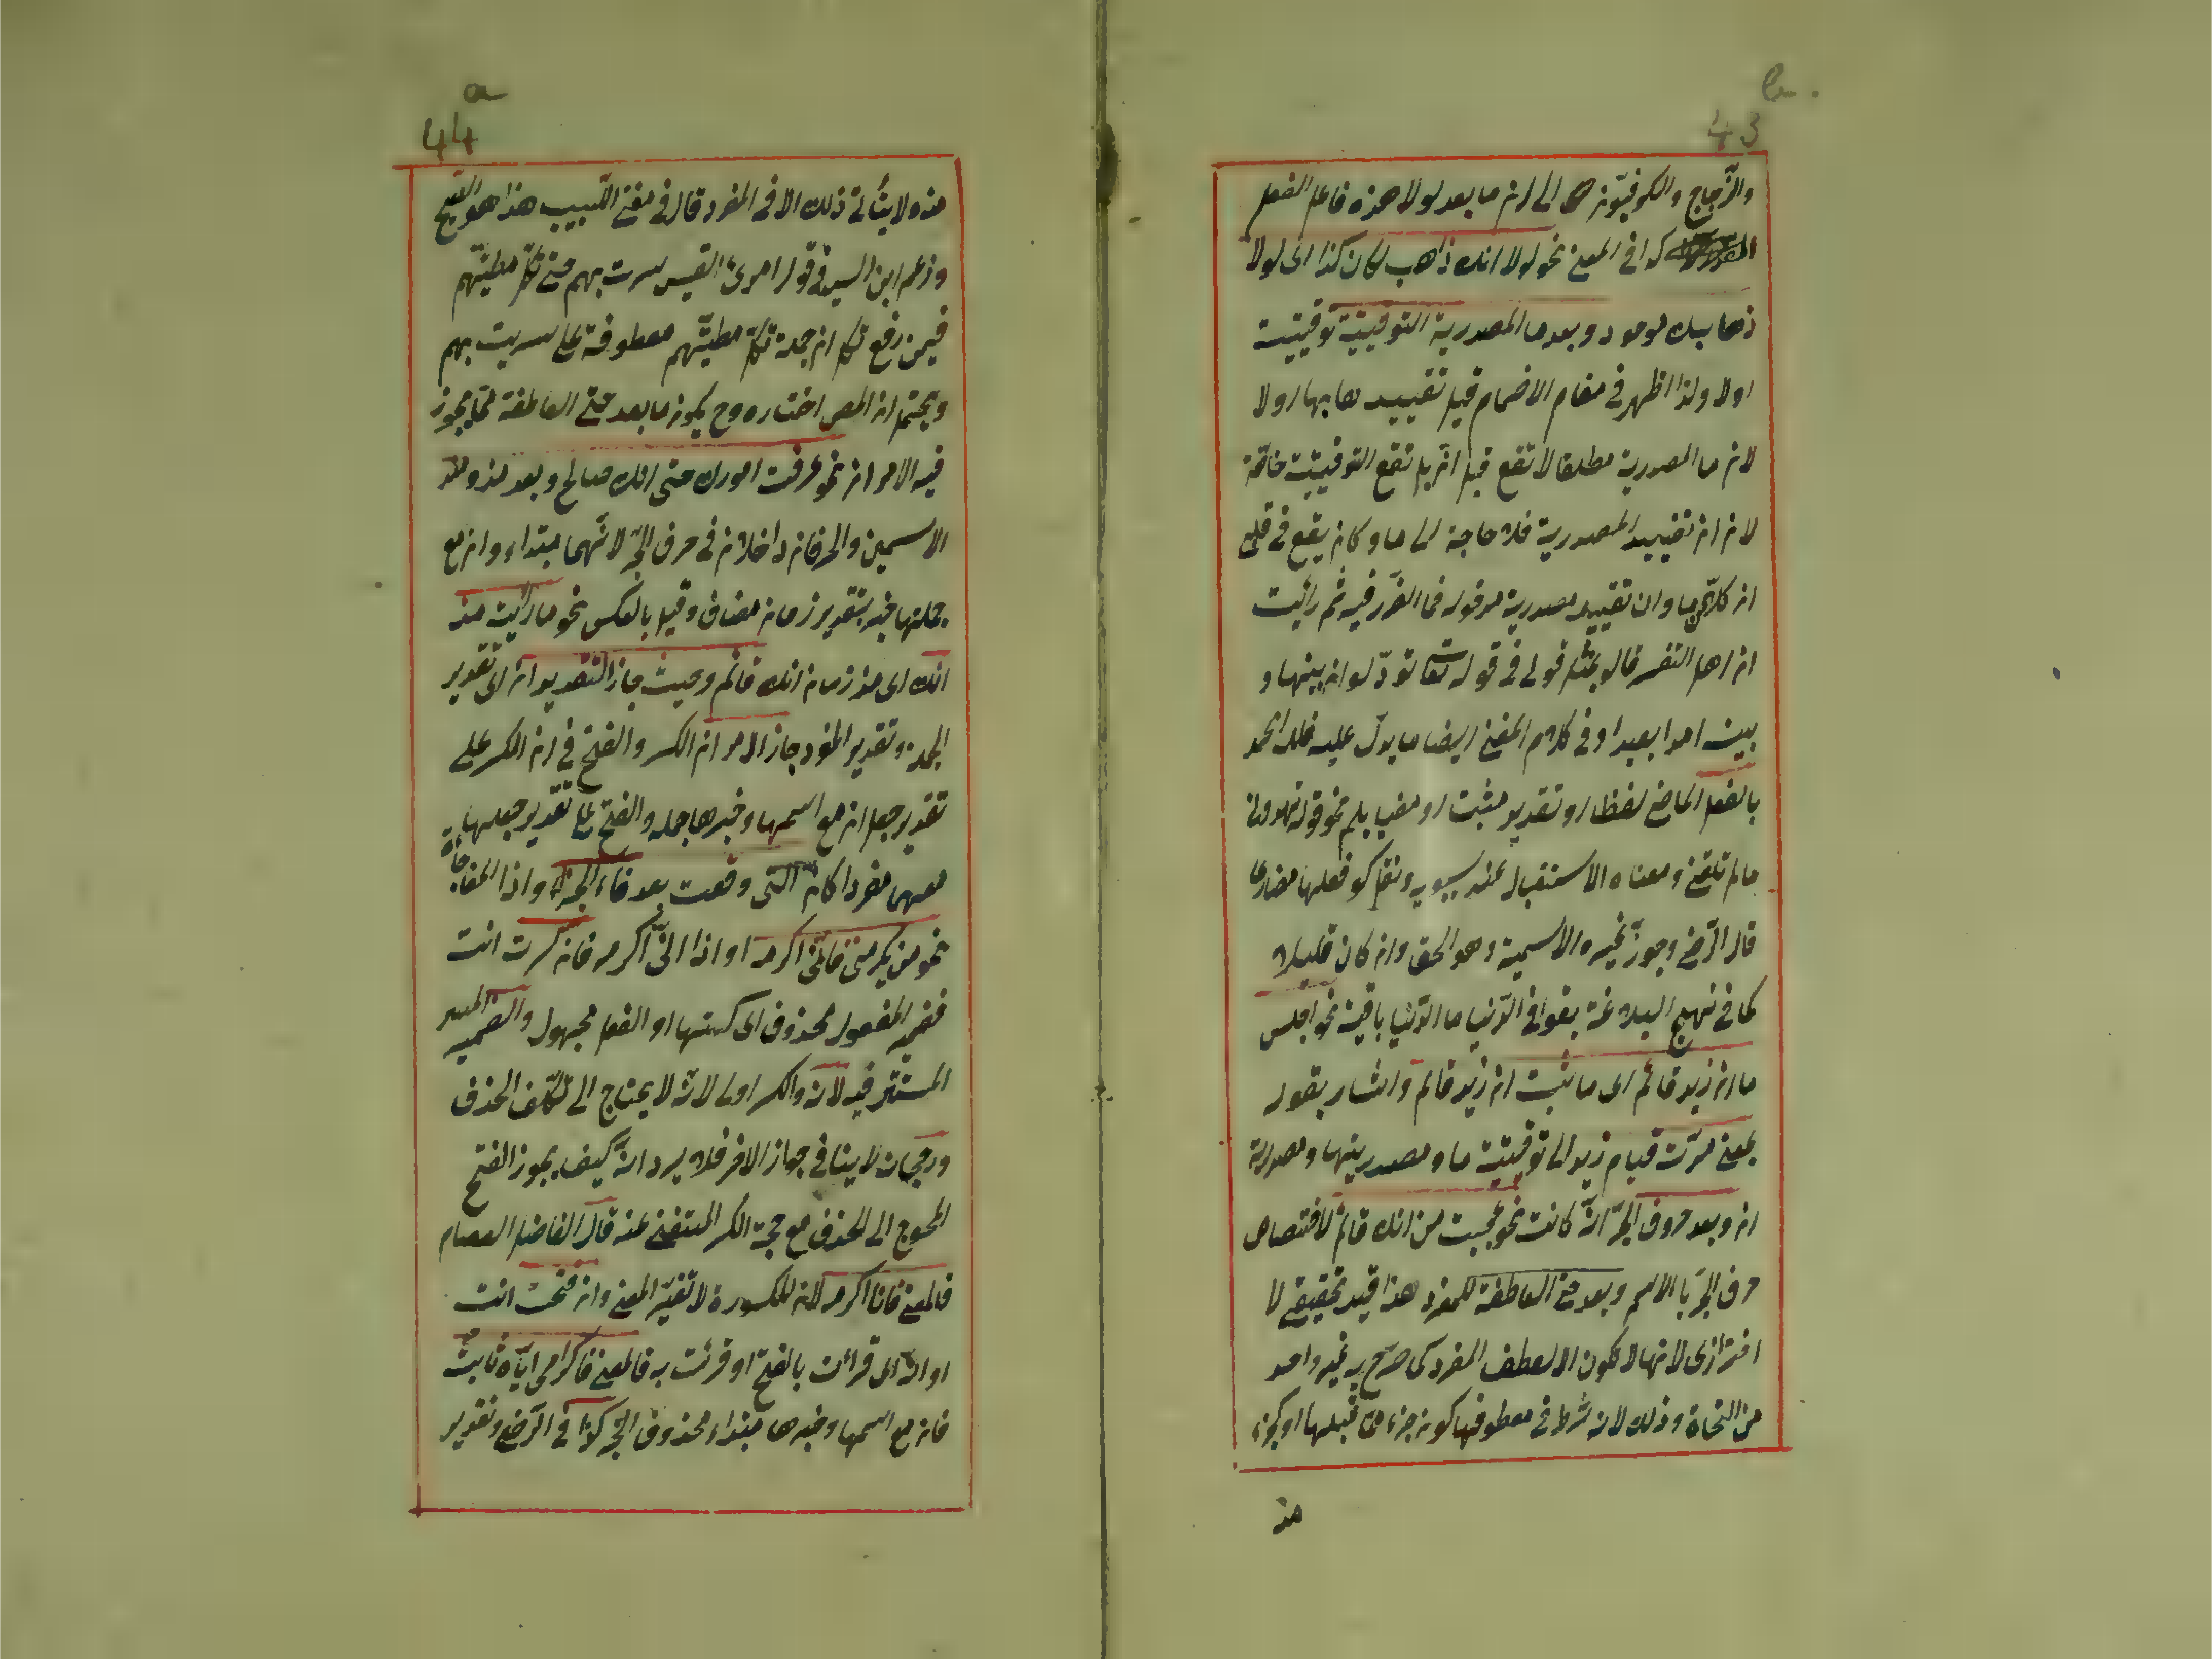 b.
43
والزّجاج والكوفيّون الى ان ما بعد لولا هذه فاعل الفعل
كذا في المغنى نحو لولا انك ذاهب لكان كذا اى لولا
ذهابك موجود وبعد ما المصدرية التوقيتية توقيتية
اولا ولذا اظهر في مقام الاضمار قيل تقييدها بها اولا
لان ما المصدرية مطلقا لا تقع قبل انّ بل تقع التوقيتية خاصّة
لان ان تقييد المصدرية فلا حاجة الى ما وكان يقع في قلبى
ان كلاهما وان تقييد مصدرية مدخوله فما الفرق فيه ثم رأيت
ان اهل التفسير قالوا بمثل قولى في قوله تعا تودّ لو ان بينها و
بينه امدا بعيدا وفي كلام المغنى ايضا ما يدلّ عليه فلله الحمد
بالفعل الماضى لفظا او تقدير مثبت او منفيا بلم نحو قوله
ما لم تلقنى ومعناه الاستقبال عند سيبويه ونقل كو فعلها مضارعا
قال الرّضى وجوزّ غيره الاسمية وهو الحق وان كان قليلا
كما في نهج البلاغة بقوا في الدّنيا ما الدّنيا باقية نحو اجلس
ما ان زيد قائم اى ما ثبت ان زيد قائم واشار بقوله
بمعنى مدّت قيام زيد الى توقيتية ما ومصدريتها ومصدرية
ان وبعد حروف الجرّ انّه كانت نحو عجبت من انك قائم لاختصاص
حرف الجرّ بالاسم وبعد حتى العاطفة للمفرد هذا قيد تحقيقى لا
احترازى لانها لا تكون الا لعطف المفرد كما صرّح به غير واحد
من النحاة وذلك لان شرط في معطوفها كونه جزء ممّا قبلها او كجزء
منه
a
44
منه ولا يتأتى ذلك الا في المفرد قال في مغنى اللّبيب هذا هو الصحيح
وزعم ابن السيد في قول امرئ القيس سرت بهم حتى تكلّ مطيّهم
فيمن رفع تكل ان جملة تكلّ مطيّهم معطوفة على سريت بهم
ويحتمل ان المص اختاره وح يكون ما بعد حتى العاطفة ممّا يجوز
فيه الامران نحو عرفت امورك حتى انك صالح وبعد مذ ومنذ
الاسمين والحرفان داخلان في حرف الجرّ لانّهما مبتداء وان مع
جملتها خبر بتقدير زمان مضاف وقيل بالعكس نحو ما رأيته مذ
انك اى مذ زمان انك قائم وحيث جاز التقديران اى تقدير
الجملة وتقدير المفرد جاز الامران الكسر والفتح في ان الكسر على
تقدير جعل ان مع اسمها وخبرها جملة والفتح على تقدير جعلها
معهما مفردا كان التى وقعت بعد فاء الجزاء واذا المفاجاة
نحو من يكرمنى فانّى اكرمه او اذا انّى اكرمه فان كسرت انت
فضمير المفعول محذوف اى كسرتها او الفعل مجهول والضمير
المستتر فيه لان والكسر اولى لانّه لا يحتاج الى تكلّف الحذف
ورجحان لا ينافى جواز الاخر فلا يرد انّه كيف يجوز الفتح
المحوج الى الحذف مع صحة الكسر المستغنى عنه قال الفاضل العصام
فالمعنى فانا اكرمه لان المكسورة لا تغيّر المعنى وان فتحت انت
او انّه اى قرأت بالفتح او قرئت به فالمعنى فاكرامى ايّاه ثابتٌ
فان مع اسمها وخبرها مبتداء محذوف الخبر كذا في الرّضى وتقدير